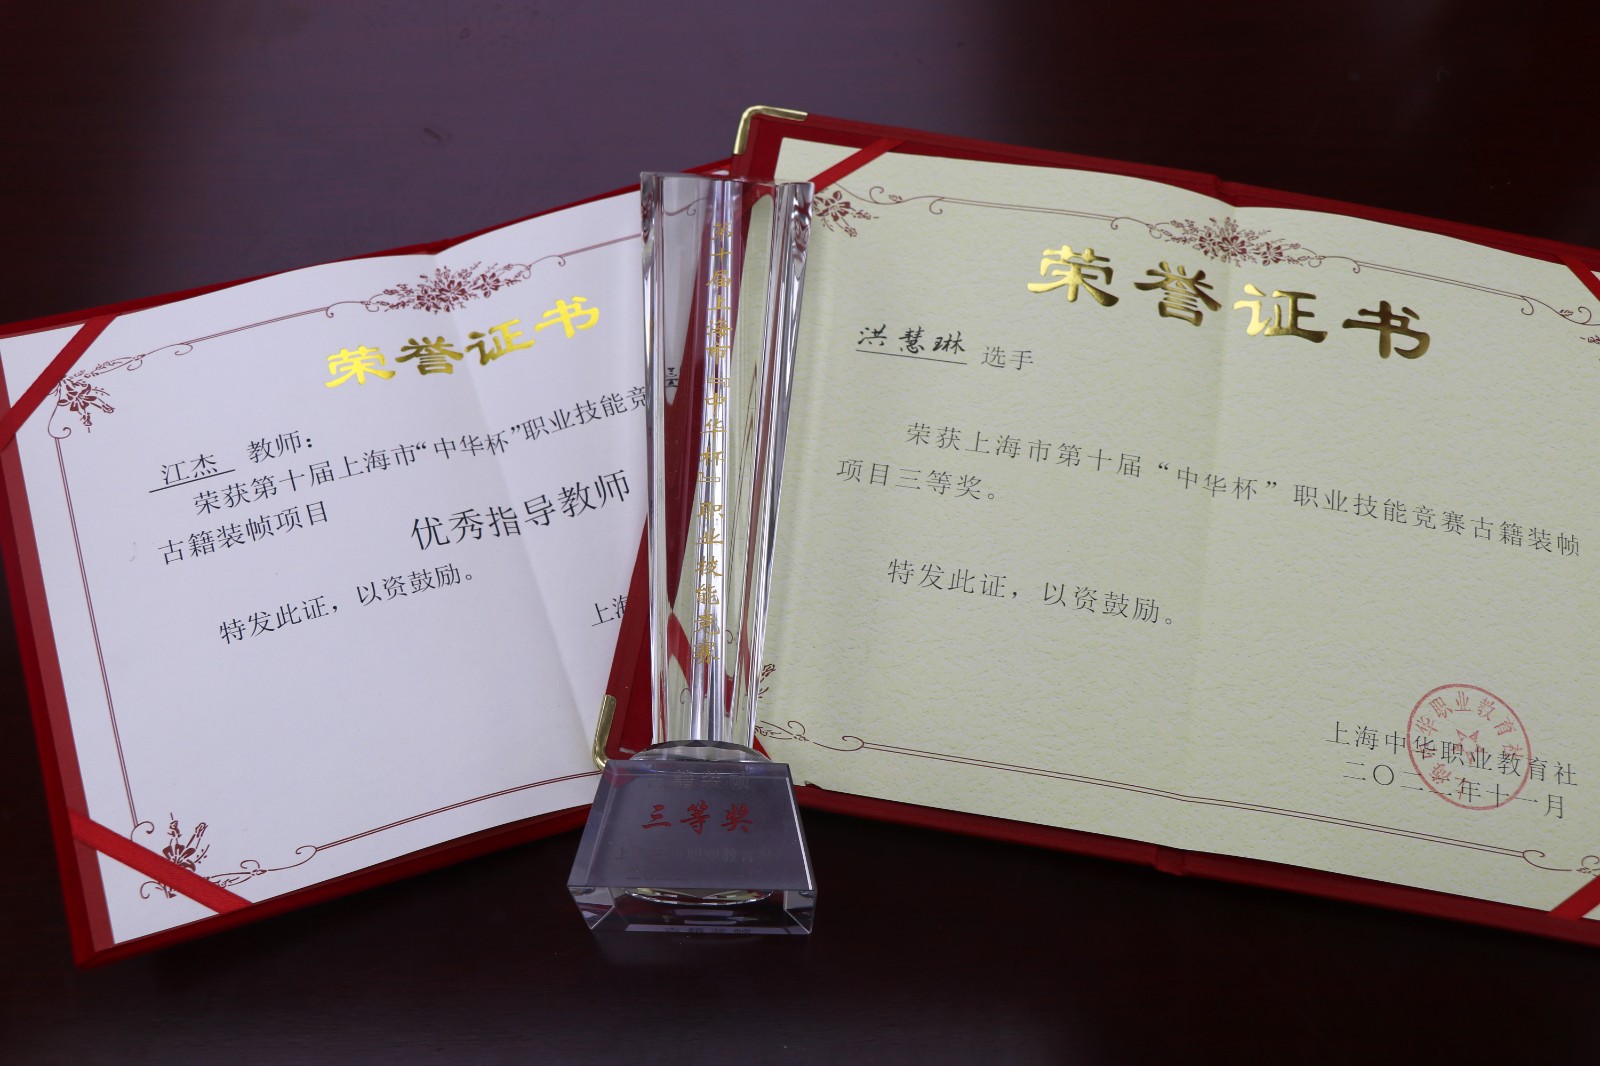 荣誉证书
江杰 教师：
荣获第十届上海市“中华杯”职业技能竞
古籍装帧项目
优秀指导教师
特发此证，以资鼓励。
上海
第十届上海市『中华杯』职业技能竞赛
三等奖
荣誉证书
洪慧琳 选手
荣获上海市第十届“中华杯”职业技能竞赛古籍装帧
项目三等奖。
特发此证，以资鼓励。
上海中华职业教育社
二〇二二年十一月